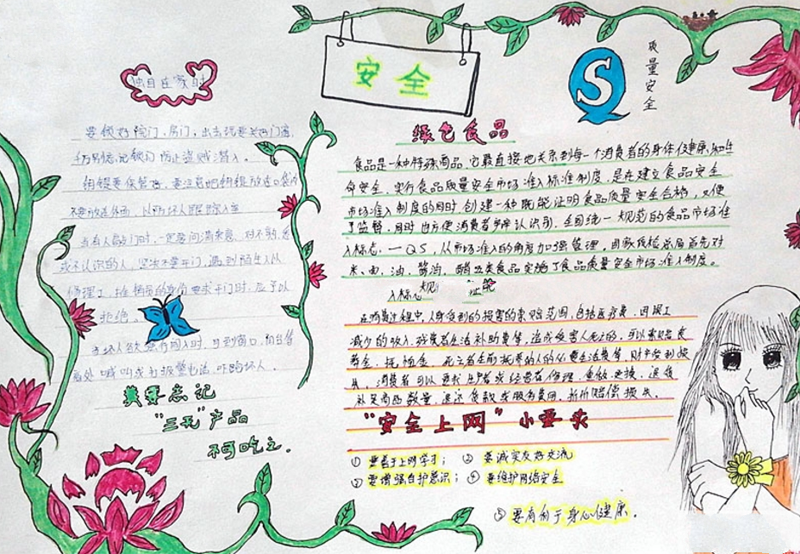 独自在家时
要锁好院门、房门,出去玩要关好门窗,
切勿忘记锁门防止盗贼潜入。
钥匙要保管好,要注意把钥匙放在口袋内
不要放在外面,以防坏人跟踪入室
当有人敲门时,一定要问清来意,对不熟悉
或不认识的人,坚决不要开门,遇到陌生人以
修理工、推销员的身份要求开门时,应予以
拒绝。
喊叫或打报警电话,吓跑坏人。
莫要忘记
"三无"产品
不可吃之.
安全
S
质量安全
绿色食品
食品是一种特殊商品,它最直接地关系到每一个消费者的身体健康和生
命安全,实行食品质量安全市场准入标准制度,是在建立食品安全
市场准入制度的同时,创建一种既能证明食品质量安全合格,又便
于监督,同时也方便消费者辨认识别,全国统一规范的食品市场准
入标志,—QS,从市场准入的角度加强管理,国家质检总局首先对
米、面、油、酱油、醋五类食品实施了食品质量安全市场准入制度。
入标志 规 范
减少的收入、残废者生活补助费等,造成受害人死亡的,可以索赔丧
葬金、抚恤金、死亡者生前抚养的人的必要生活费等,财产受到损
失,消费者可以要求生产者或经营者修理、重做、更换、退货
补足商品数量、退还货款或服务费用、折价赔偿损失。
"安全上网"小要求
①要善于上网学习; ②要诚实友好交流
③要增强自护意识; ④要维护网络安全
⑤要有利于身心健康.